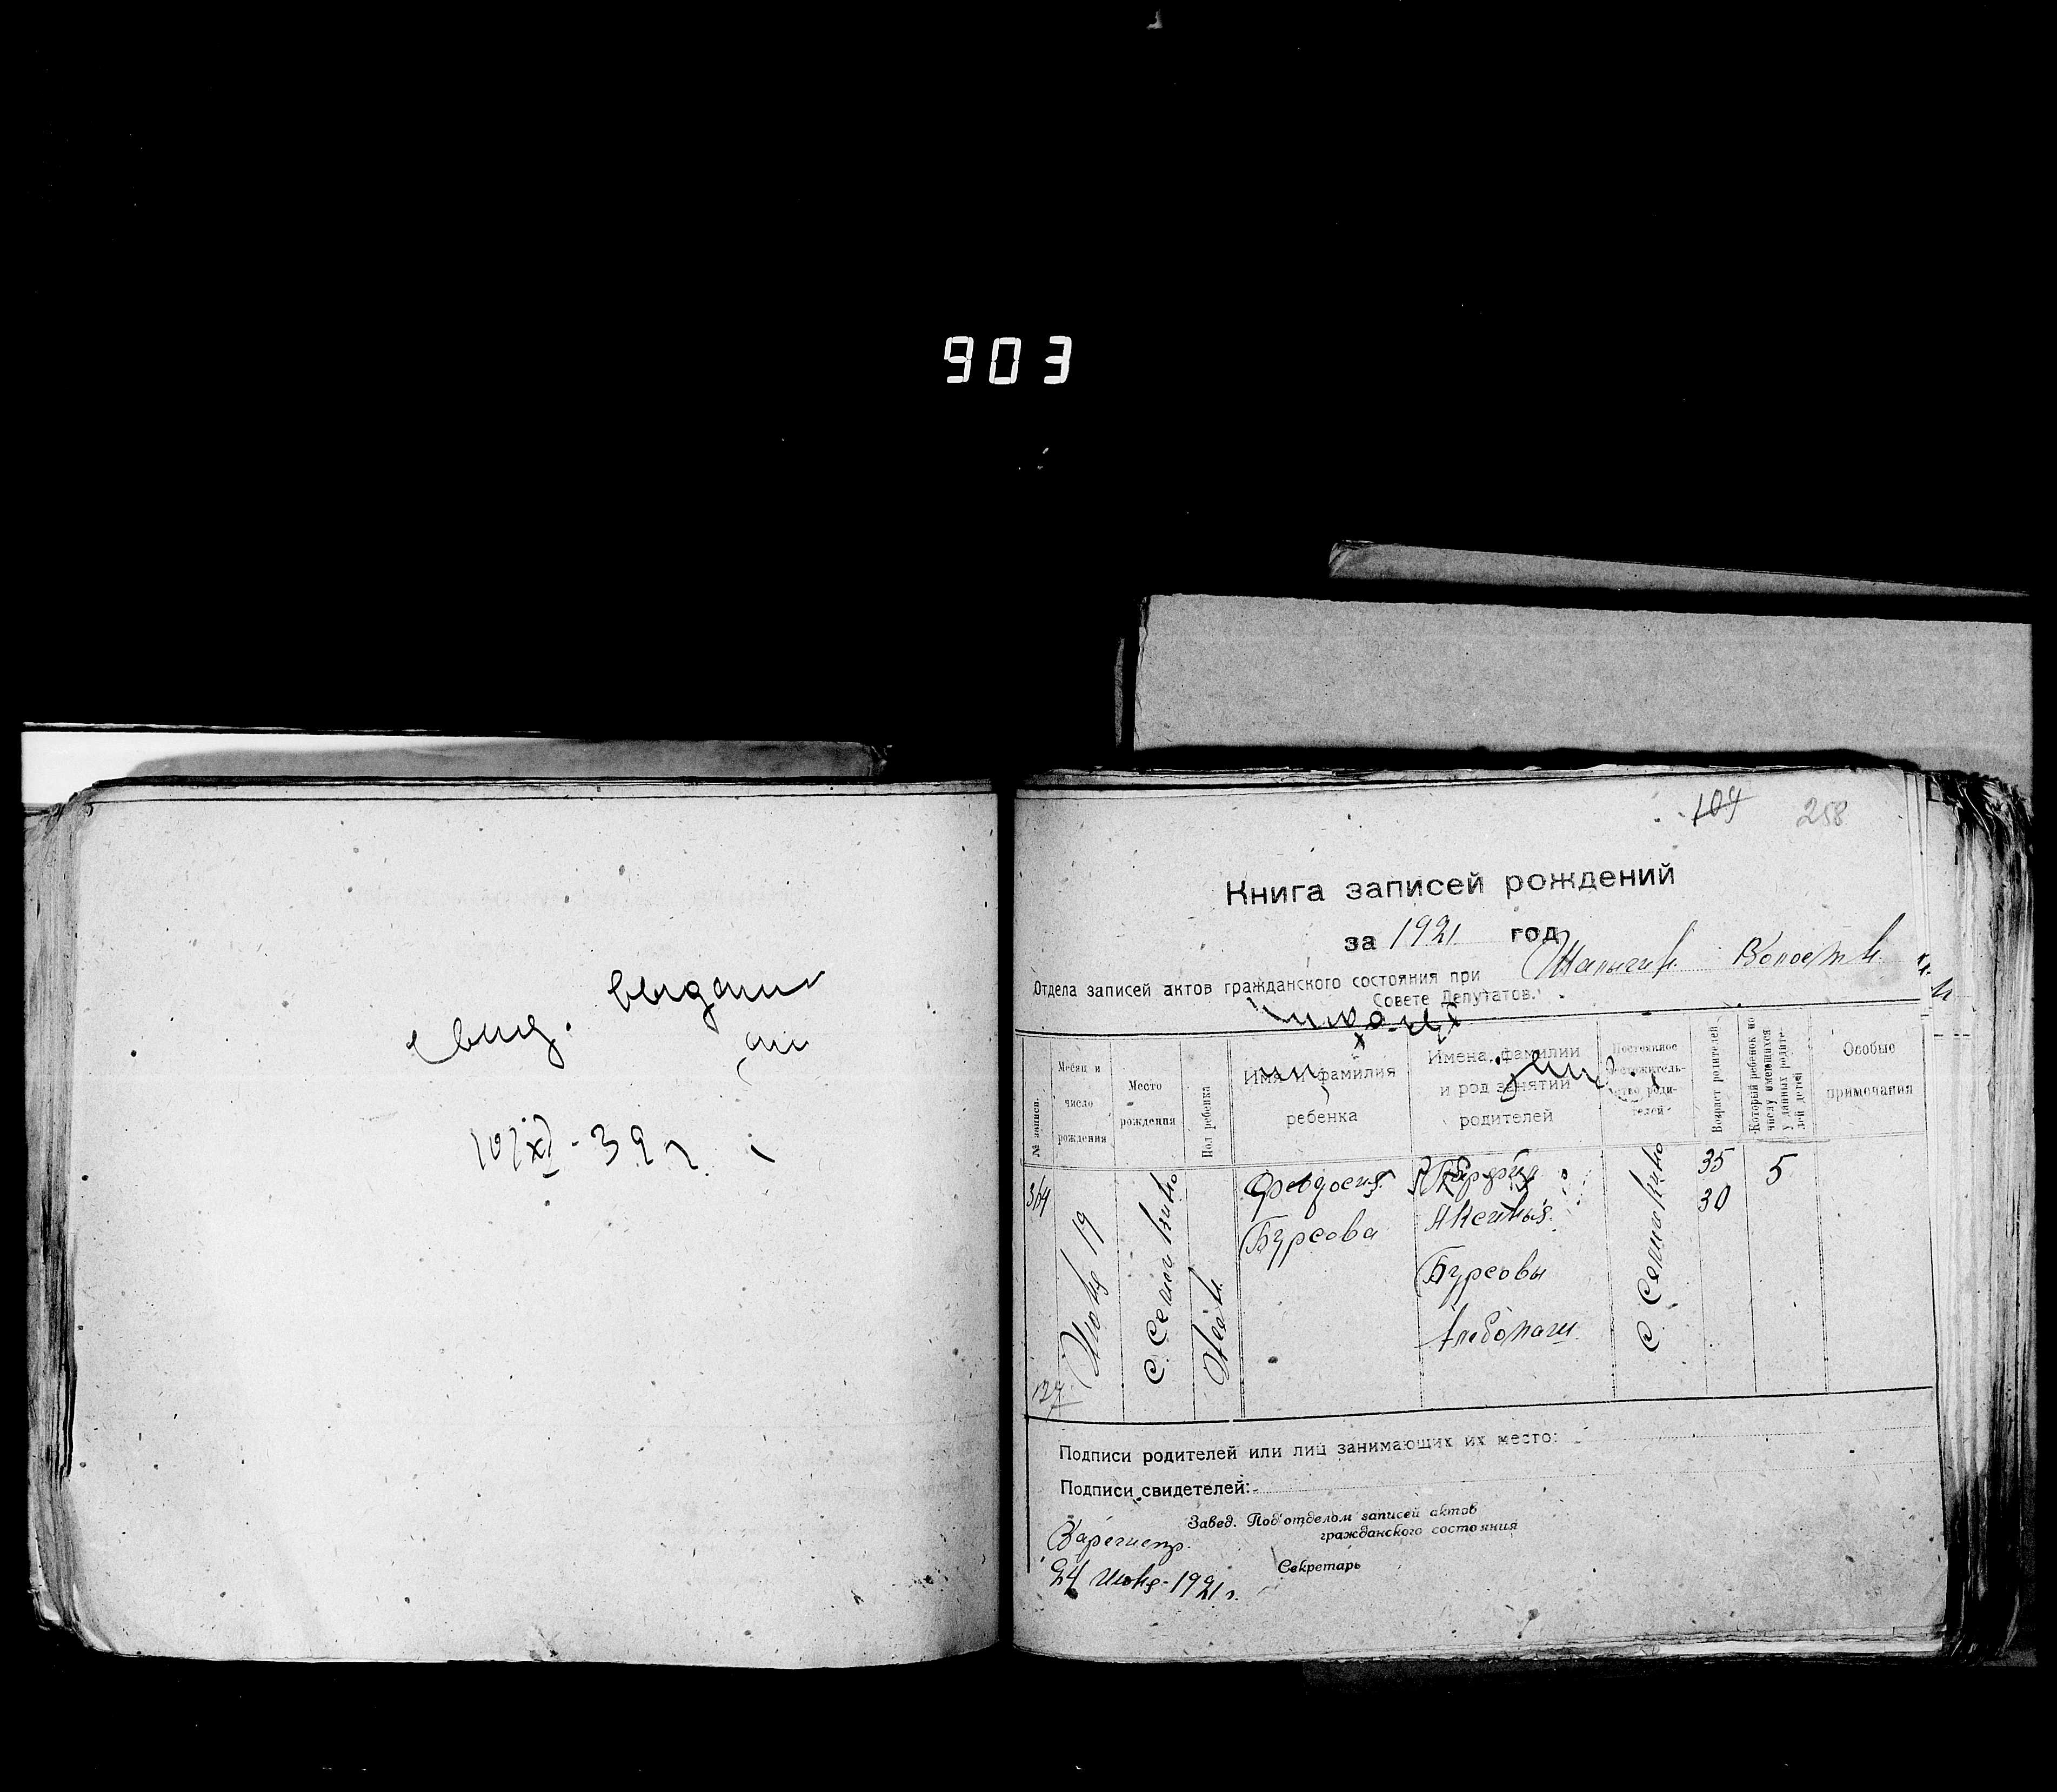 903
свид. выдано
10/XI-39 г.
104 258
Книга записей рождений
за 1921 год
Отдела записей актов гражданского состояния при Шалыгин. Волостн.
Совете Депутатов.
№ записи.
Месяц и число рождения
Место рождения
Пол ребенка
Имя и фамилия ребенка
Имена, фамилии и род занятий родителей
Постоянное местожительство родителей
Возраст родителей
Который ребенок по числу имеющихся у данных родителей детей
Особые примечания
364
127
Июня 19
Феодосия
Бурсова
Аксинья
Бурсовы
хлебопаш.
35
30
5
Подписи родителей или лиц занимающих их место:
Подписи свидетелей:
Завед. Под'отделом записей актов
гражданского состояния
Зарегистр.
Секретарь
24 Июня 1921 г.